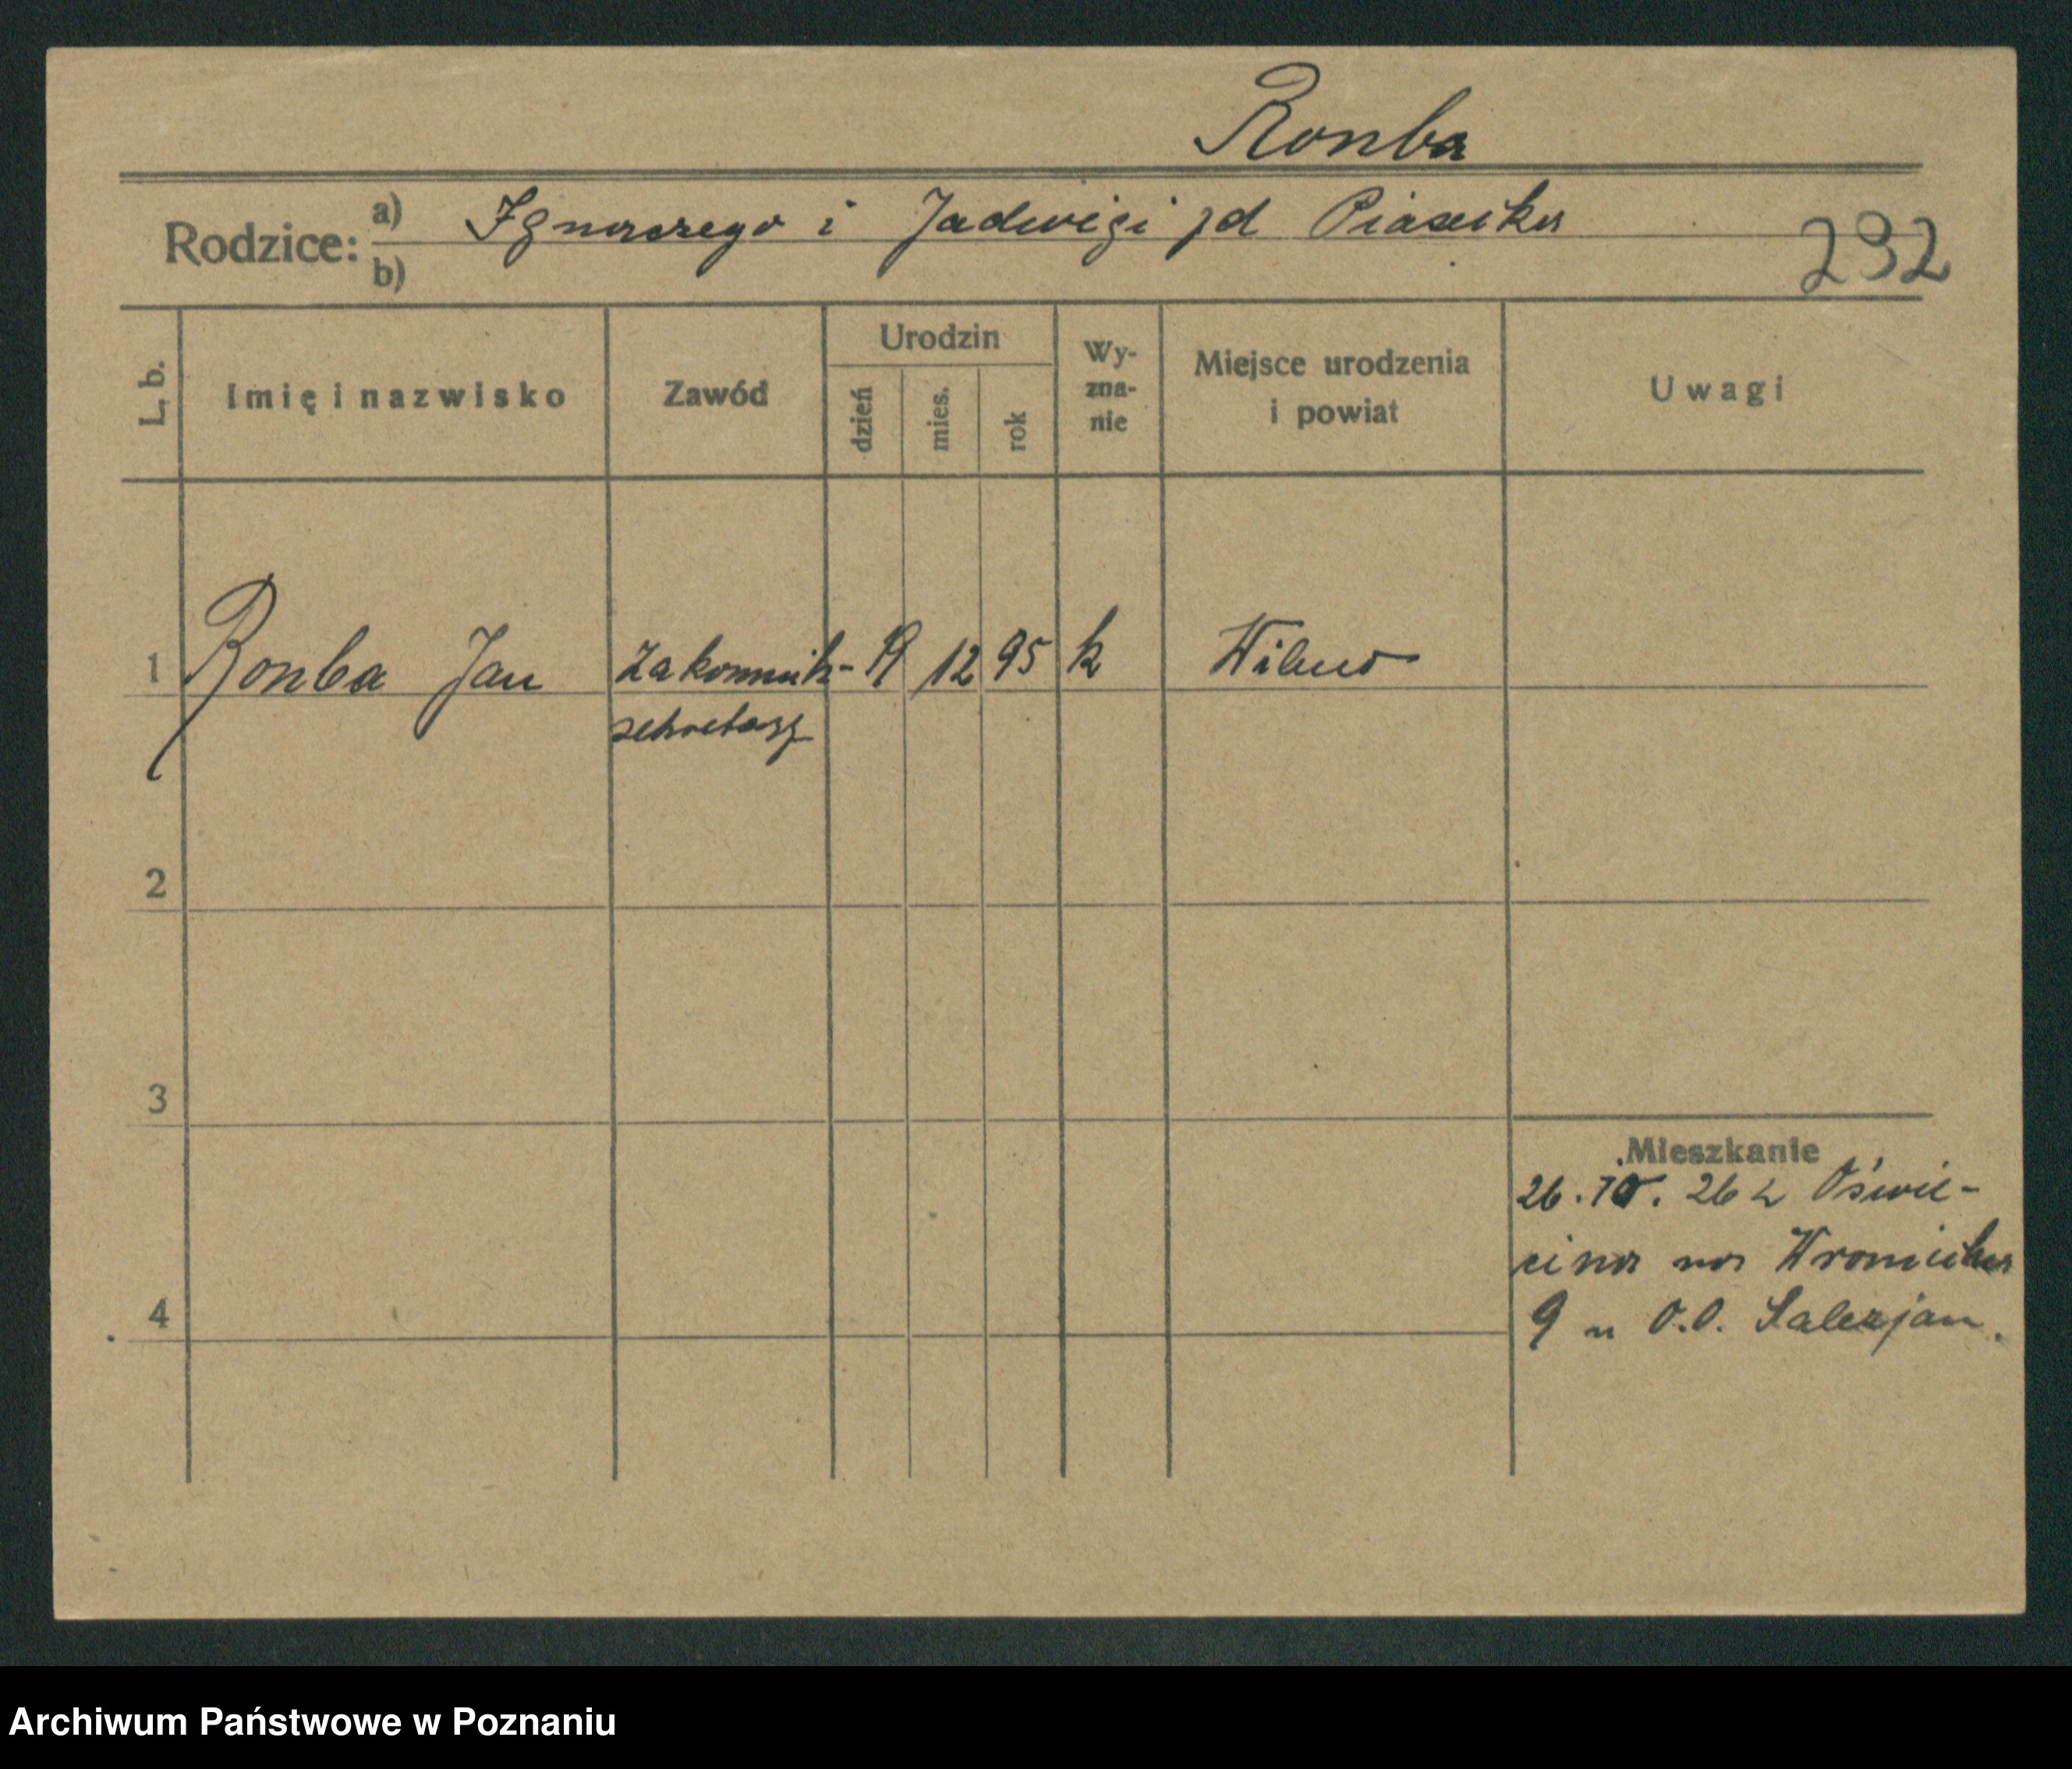 Ronba
Rodzice: a) Ignaczego i Jadwigi zd Piasecka
b)
292
L. b.
Imię i nazwisko
Zawód
Urodzin
dzień
mies.
rok
Wy-
zna-
nie
Miejsce urodzenia
i powiat
Uwagi
1 Ronba Jan Zakonnik- 19 12 95 k Wilno
sekretarz
2
3
Mieszkanie
26. 10. 26 z Oświę-
cima na Wroniecka
4
9 u O.O. Salezjan.
Archiwum Państwowe w Poznaniu